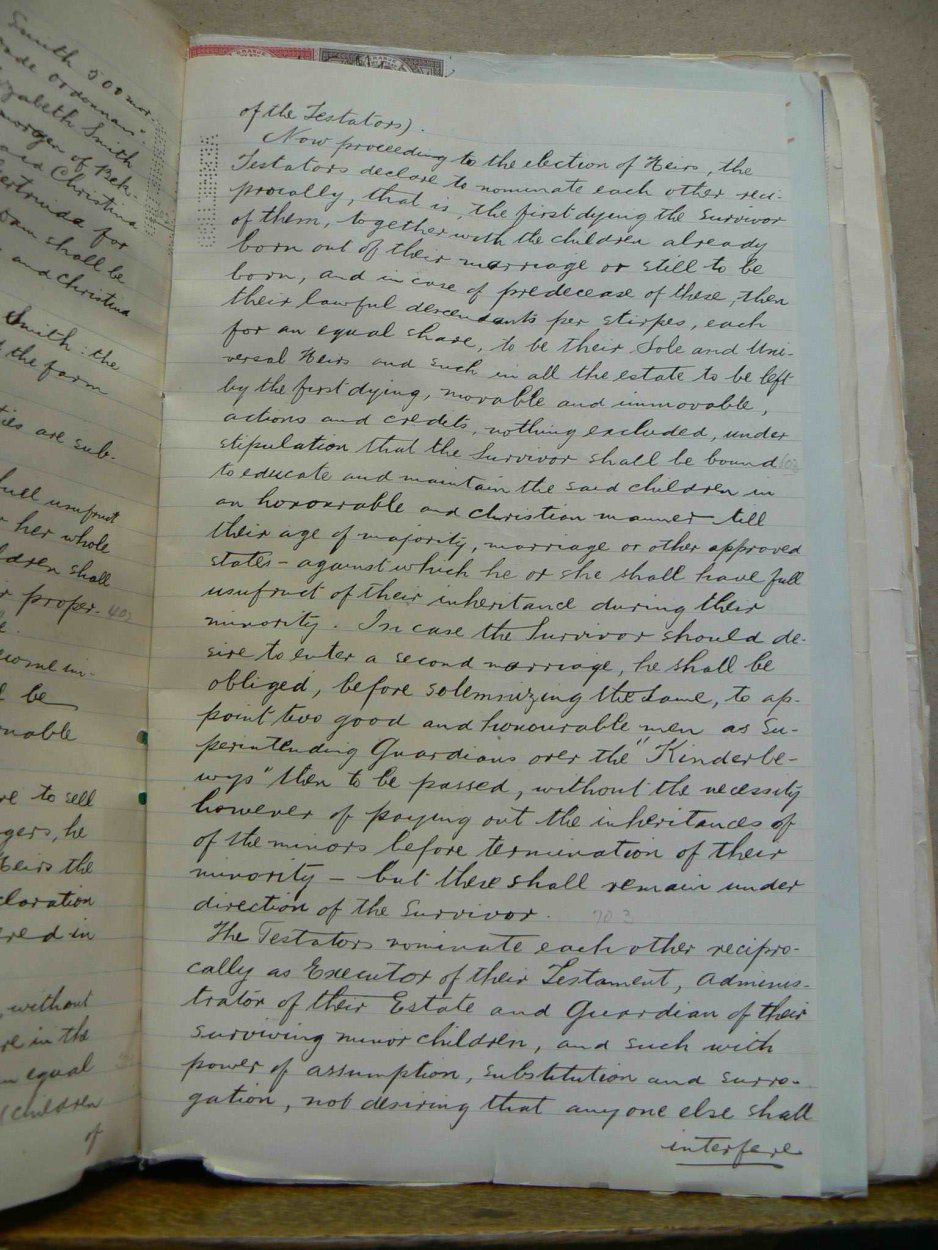 Smith 500 mor
ade
zabeth Smith
morgen of Bek-
and Christina
ertruida for
shall be
and Christina
Smith: the
the farm
ties are sub-
full usufruct
her whole
ldren shall
proper-
be
nable
re to sell
gers, he
Heirs the
claration
ered in
without
re in the
equal
(children
of
of the Testators).
Now proceeding to the election of Heirs, the
Testators declare to nominate each other reci-
procally, that is, the first dying the Survivor
of them, together with the children already
born out of their marriage or still to be
born, and in case of predecease of these, then
their lawful descendants per stirpes, each
for an equal share, to be their Sole and Uni-
versal Heirs and such in all the estate to be left
by the first dying, movable and immovable,
actions and credits, nothing excluded, under
stipulation that the Survivor shall be bound
to educate and maintain the said children in
an honourable and christian manner till
their age of majority, marriage or other approved
states - against which he or she shall have full
usufruct of their inheritance during their
minority. In case the Survivor should de-
sire to enter a second marriage, he shall be
obliged, before solemnizing the same, to ap-
point two good and honourable men as Su-
perintending Guardians over the "Kinderbe-
wys" then to be passed, without the necessity
however of paying out the inheritances of
of the minors before termination of their
minority - but these shall remain under
direction of the Survivor.
703
The Testators nominate each other recipro-
cally as Executor of their Testament, Adminis-
trator of their Estate and Guardian of their
surviving minor children, and such with
power of assumption, substitution and surro-
gation, not desiring that anyone else shall
interfere